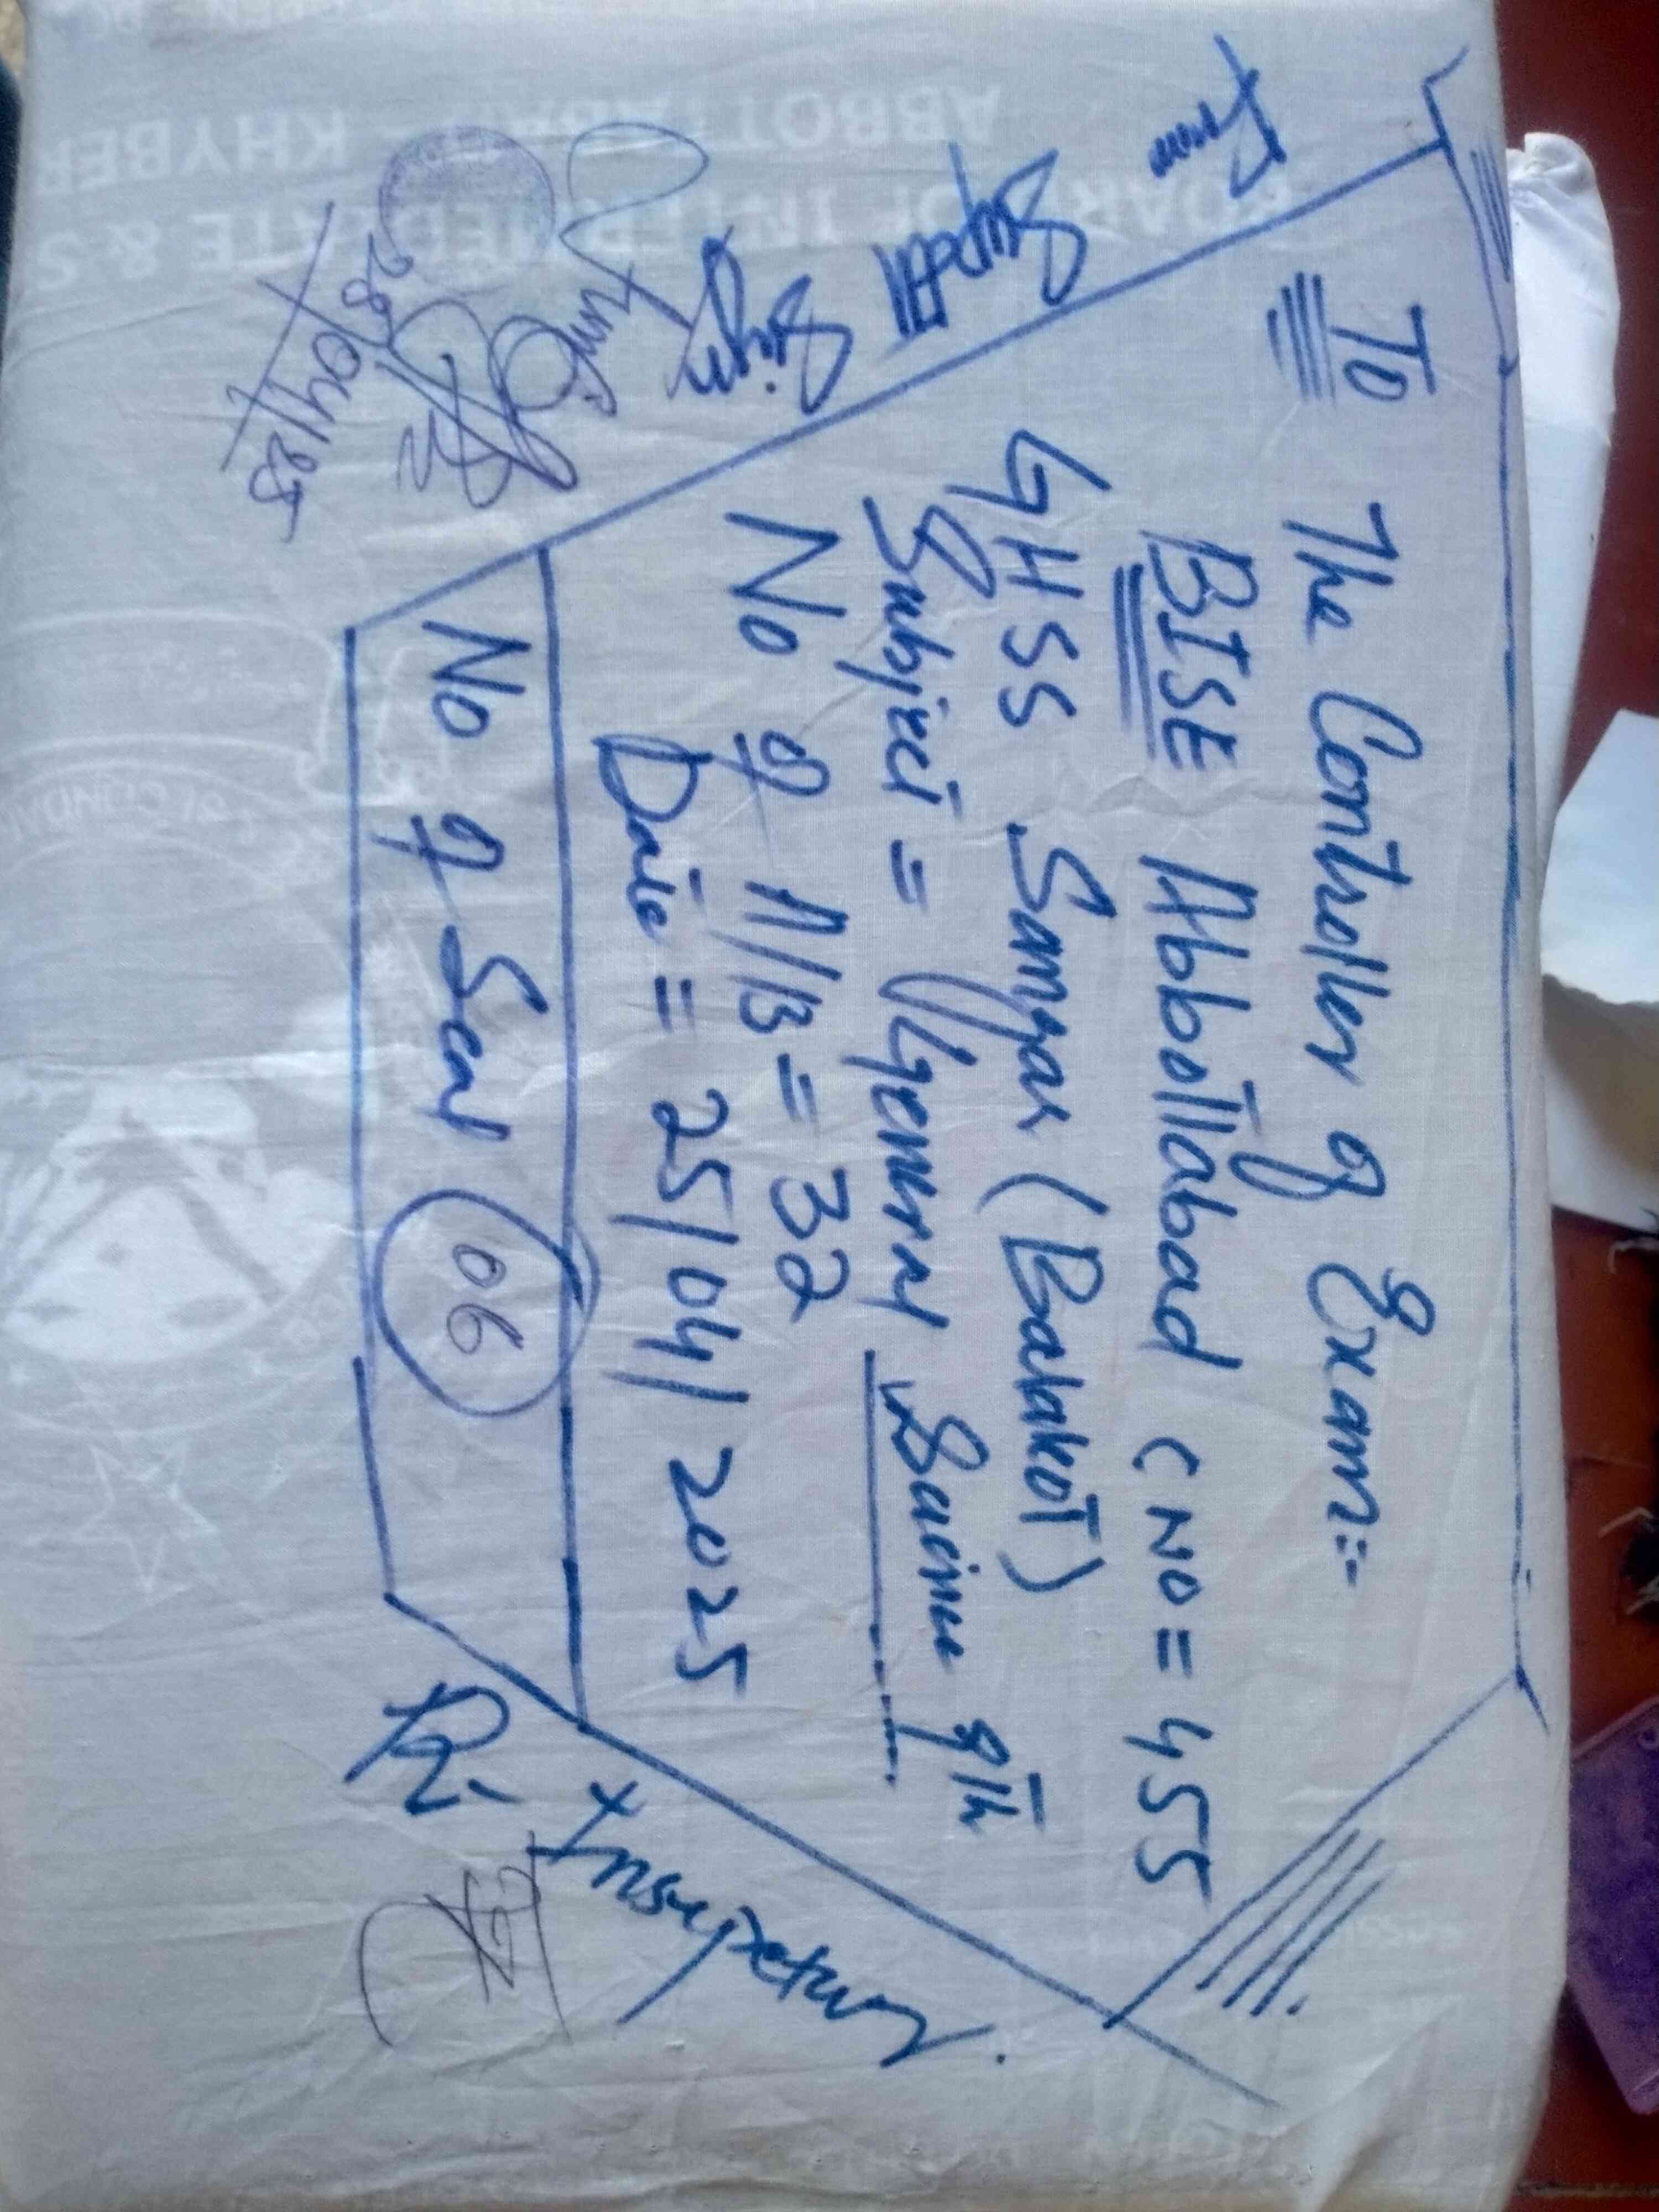 To
The Controller of Exam:-
BISE Abbottabad (No = 455
GHSS Sangar (Balakot)
Subject = General Science 9th
No of A/B = 32
Date = 25/04/2025
No of Seal 06
From
Suptt
Sign
28/04/25
ABBOTTABAD KHYBER
BOARD OF INTERMEDIATE & S